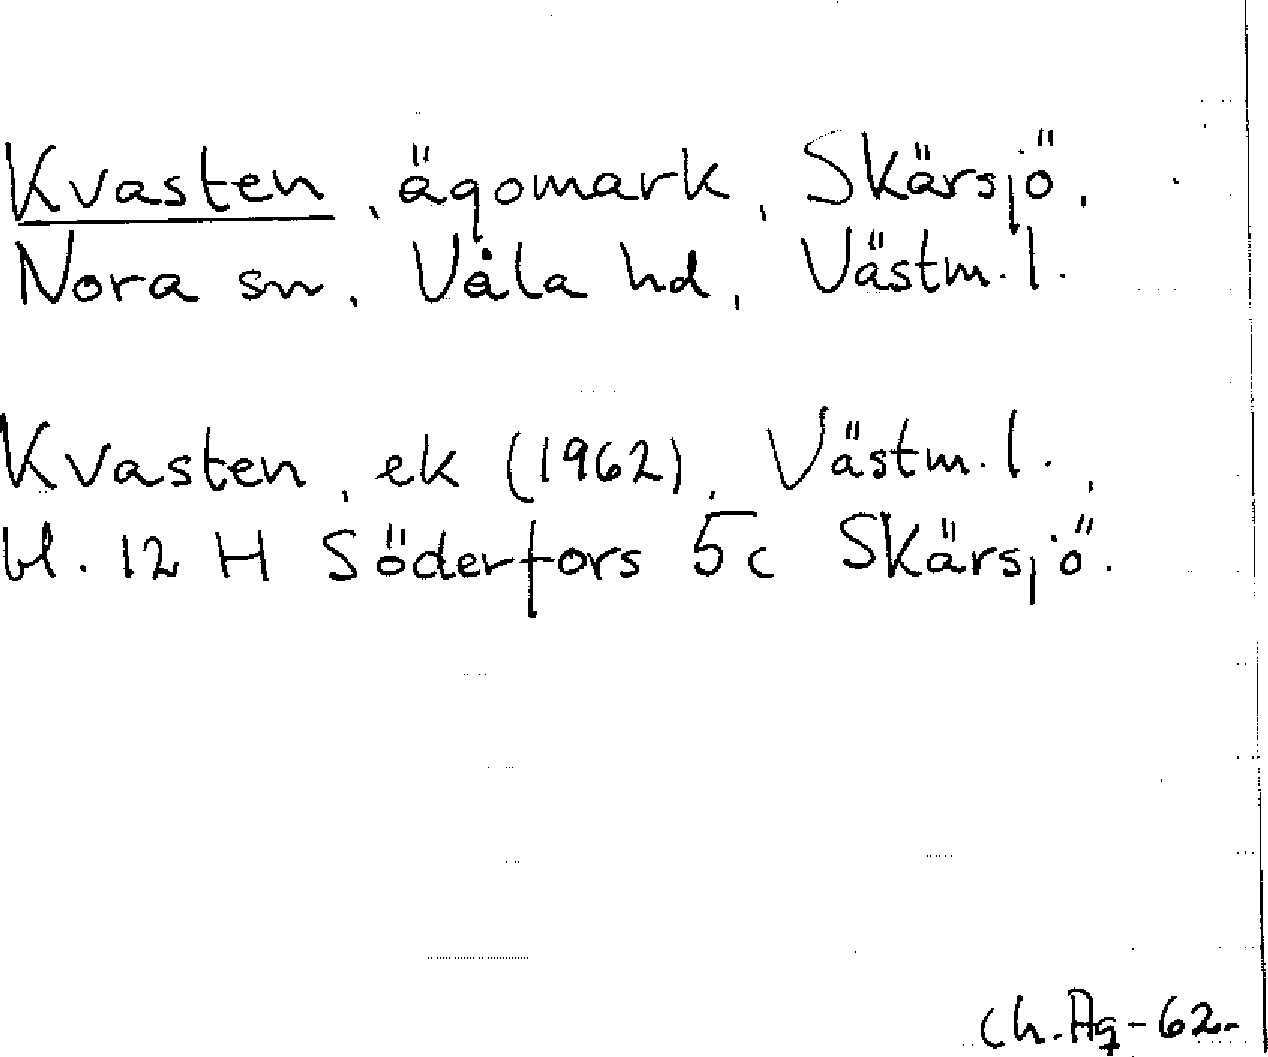 Kvasten, ägomark, Skärsjö,
Nora sn, Våla hd, Västm. l.
Kvasten, ek (1962), Västm. l.,
bl. 12 H Söderfors 5c Skärsjö.
Ch. Ag -62.